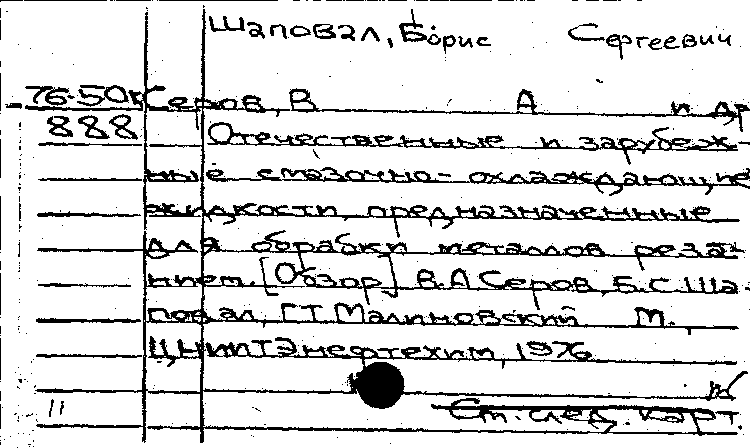 Шаповал, Борис Сергеевич
76-50к Серов, В А и др
888 Отечественные и зарубеж-
ные смазочно-охлаждающие
жидкости, предназначенные
для обрабки металлов реза-
нием. [Обзор] В.А Серов, Б.С.Ша-
повал, Г.Т Малиновский М.,
ЦНИИТЭнефтехим, 1976
11 См. след. карт.